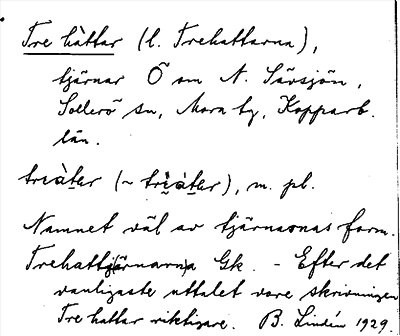 Tre hattar (l. Trehattarna),
tjärnar Ö om N. Särsjön,
Sollerö sn, Mora tg, Kopparb.
län.
m. pl.
Namnet väl av tjärnarnas form.
Trehattjärnarna Gk. - Efter det
vanligaste uttalet vore skrivningen
Tre hattar riktigare. B. Lindén 1929.